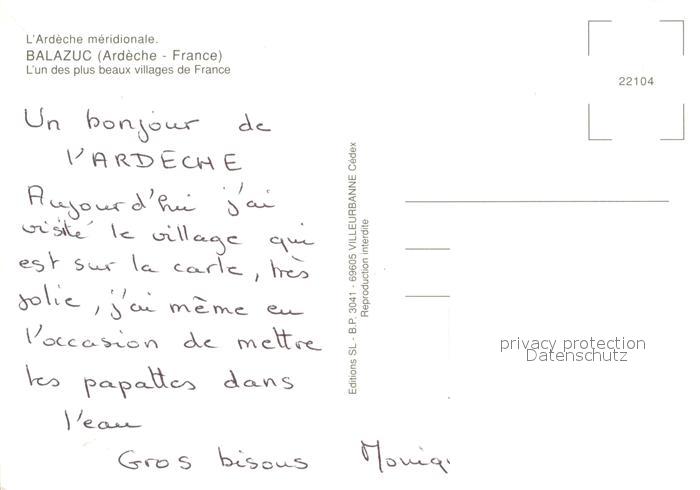 L'Ardèche méridionale.
BALAZUC (Ardèche - France)
L'un des plus beaux villages de France
22104
Un bonjour de
l'ARDECHE
Aujourd'hui j'ai
visité le village qui
est sur la carte, très
jolie, j'ai même eu
l'occasion de mettre
les papattes dans
l'eau
Gros bisous Moniq
Editions SL - B.P. 3041 - 69605 VILLEURBANNE Cédex
Reproduction interdite
privacy protection
Datenschutz